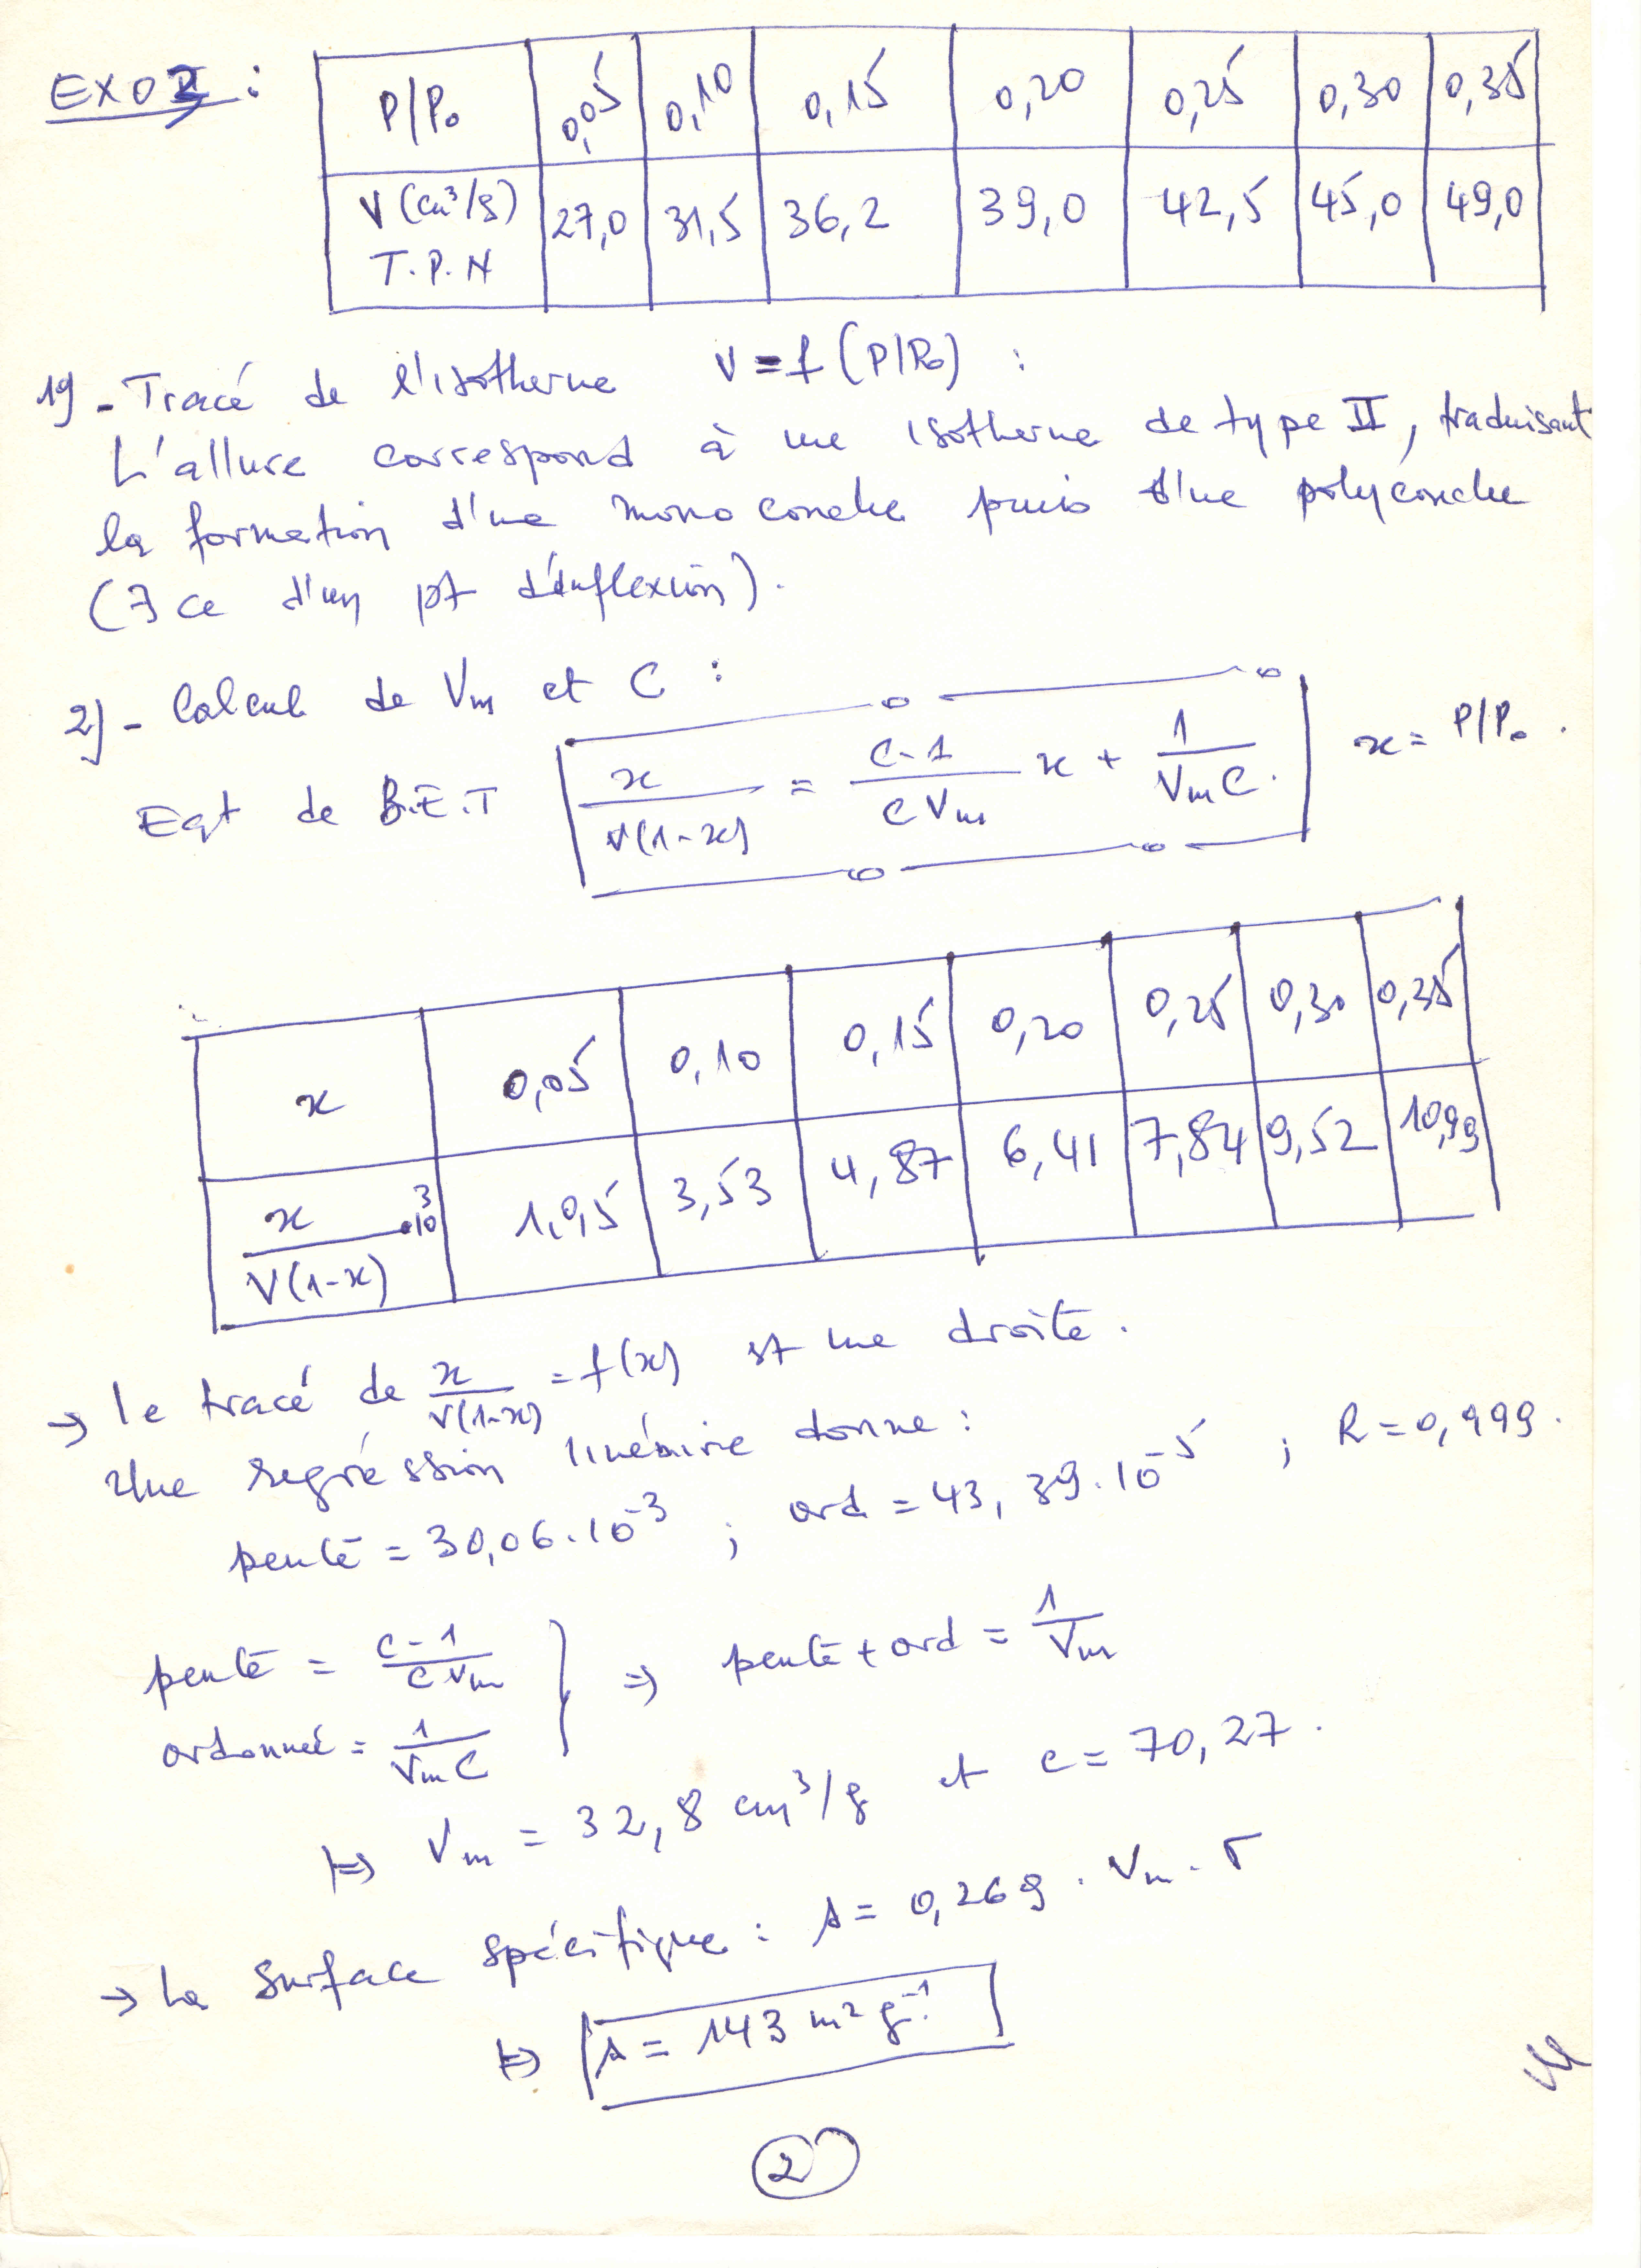 EXO2 :
P/P₀ 0,05 0,10 0,15 0,20 0,25 0,30 0,35
V (cm³/g) T.P.N 27,0 31,5 36,2 39,0 42,5 45,0 49,0
1) - Tracé de l'isotherme V = f (P/P₀) :
L'allure correspond à une isotherme de type II, traduisant
la formation d'une mono couche puis d'une polycouche
(∃ ce d'un pt d'inflexion).
2) - Calcul de Vm et C :
Eqt de B.E.T x / V(1-x) = C-1 / C Vm x + 1 / Vm C . x = P/P₀ .
x 0,05 0,10 0,15 0,20 0,25 0,30 0,35
x / V(1-x) .10³ 1,05 3,53 4,87 6,41 7,84 9,52 10,99
→ Le tracé de x / V(1-x) = f(x) st une droite .
Une regréssion linéaire donne :
pente = 30,06.10⁻³ ; ord = 43,39.10⁻⁵ ; R = 0,999.
pente = C-1 / C Vm
ordonneé = 1 / Vm C } ⇒ pente + ord = 1 / Vm
⊨⇒ Vm = 32,8 cm³/g et c = 70,27 .
→ La surface spécifique : A = 0,269 . Vm . σ
⊨⇒ A = 143 m² g⁻¹.
2